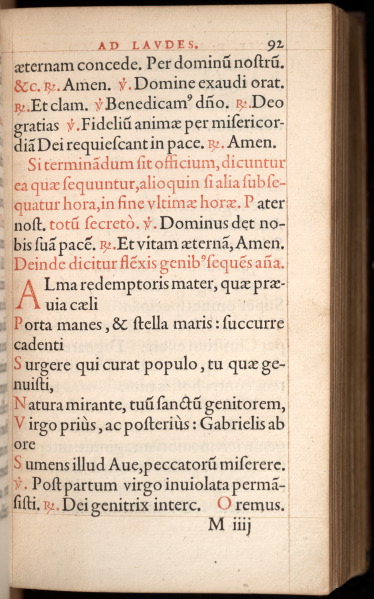 AD LAVDES. 92
æternam concede. Per dominū nostrū.
&c. ℟. Amen. ℣. Domine exaudi orat.
℟. Et clam. ℣ Benedicamꝰ dño. ℟. Deo
gratias ℣. Fideliū animæ per misericor-
diā Dei requiescant in pace. ℟. Amen.
Si terminādum sit officium, dicuntur
ea quæ sequuntur, alioquin si alia subse-
quatur hora, in fine vltimæ horæ. Pater
nost. totū secretò. ℣. Dominus det no-
bis suā pacē. ℟. Et vitam æternā, Amen.
Deinde dicitur flexis genibꝰ sequēs aña.
ALma redemptoris mater, quæ præ-
uia cæli
Porta manes, & stella maris: succurre
cadenti
Surgere qui curat populo, tu quæ ge-
nuisti,
Natura mirante, tuū sanctū genitorem,
Virgo priùs, ac posteriùs: Gabrielis ab
ore
Sumens illud Aue, peccatorū miserere.
℣. Post partum virgo inuiolata permā-
sisti. ℟. Dei genitrix interc. Oremus.
M iiij